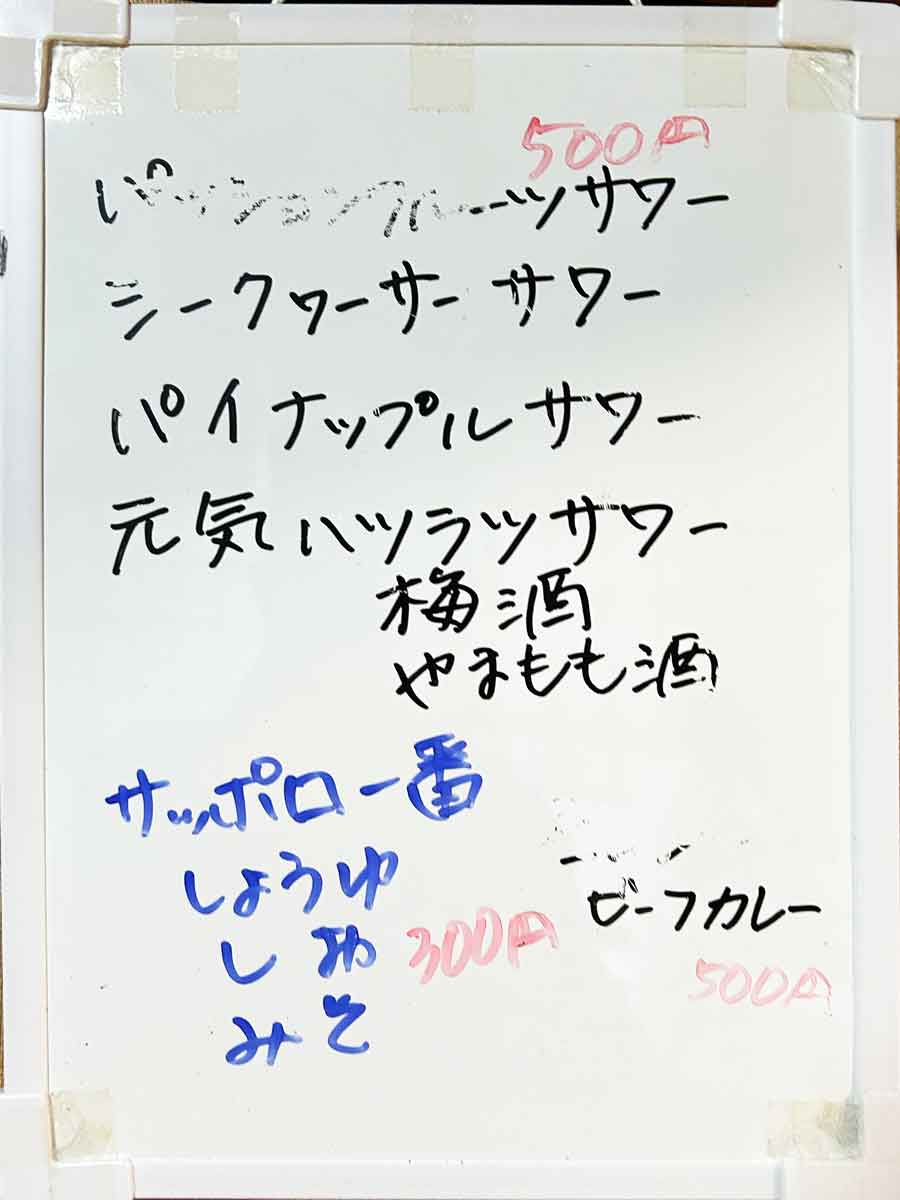 500円
パッションフルーツサワー
シークヮーサー サワー
パイナップルサワー
元気ハツラツサワー
梅酒
やまもも酒
サッポロ一番
しょうゆ
しお 300円
みそ
ビーフカレー
500円